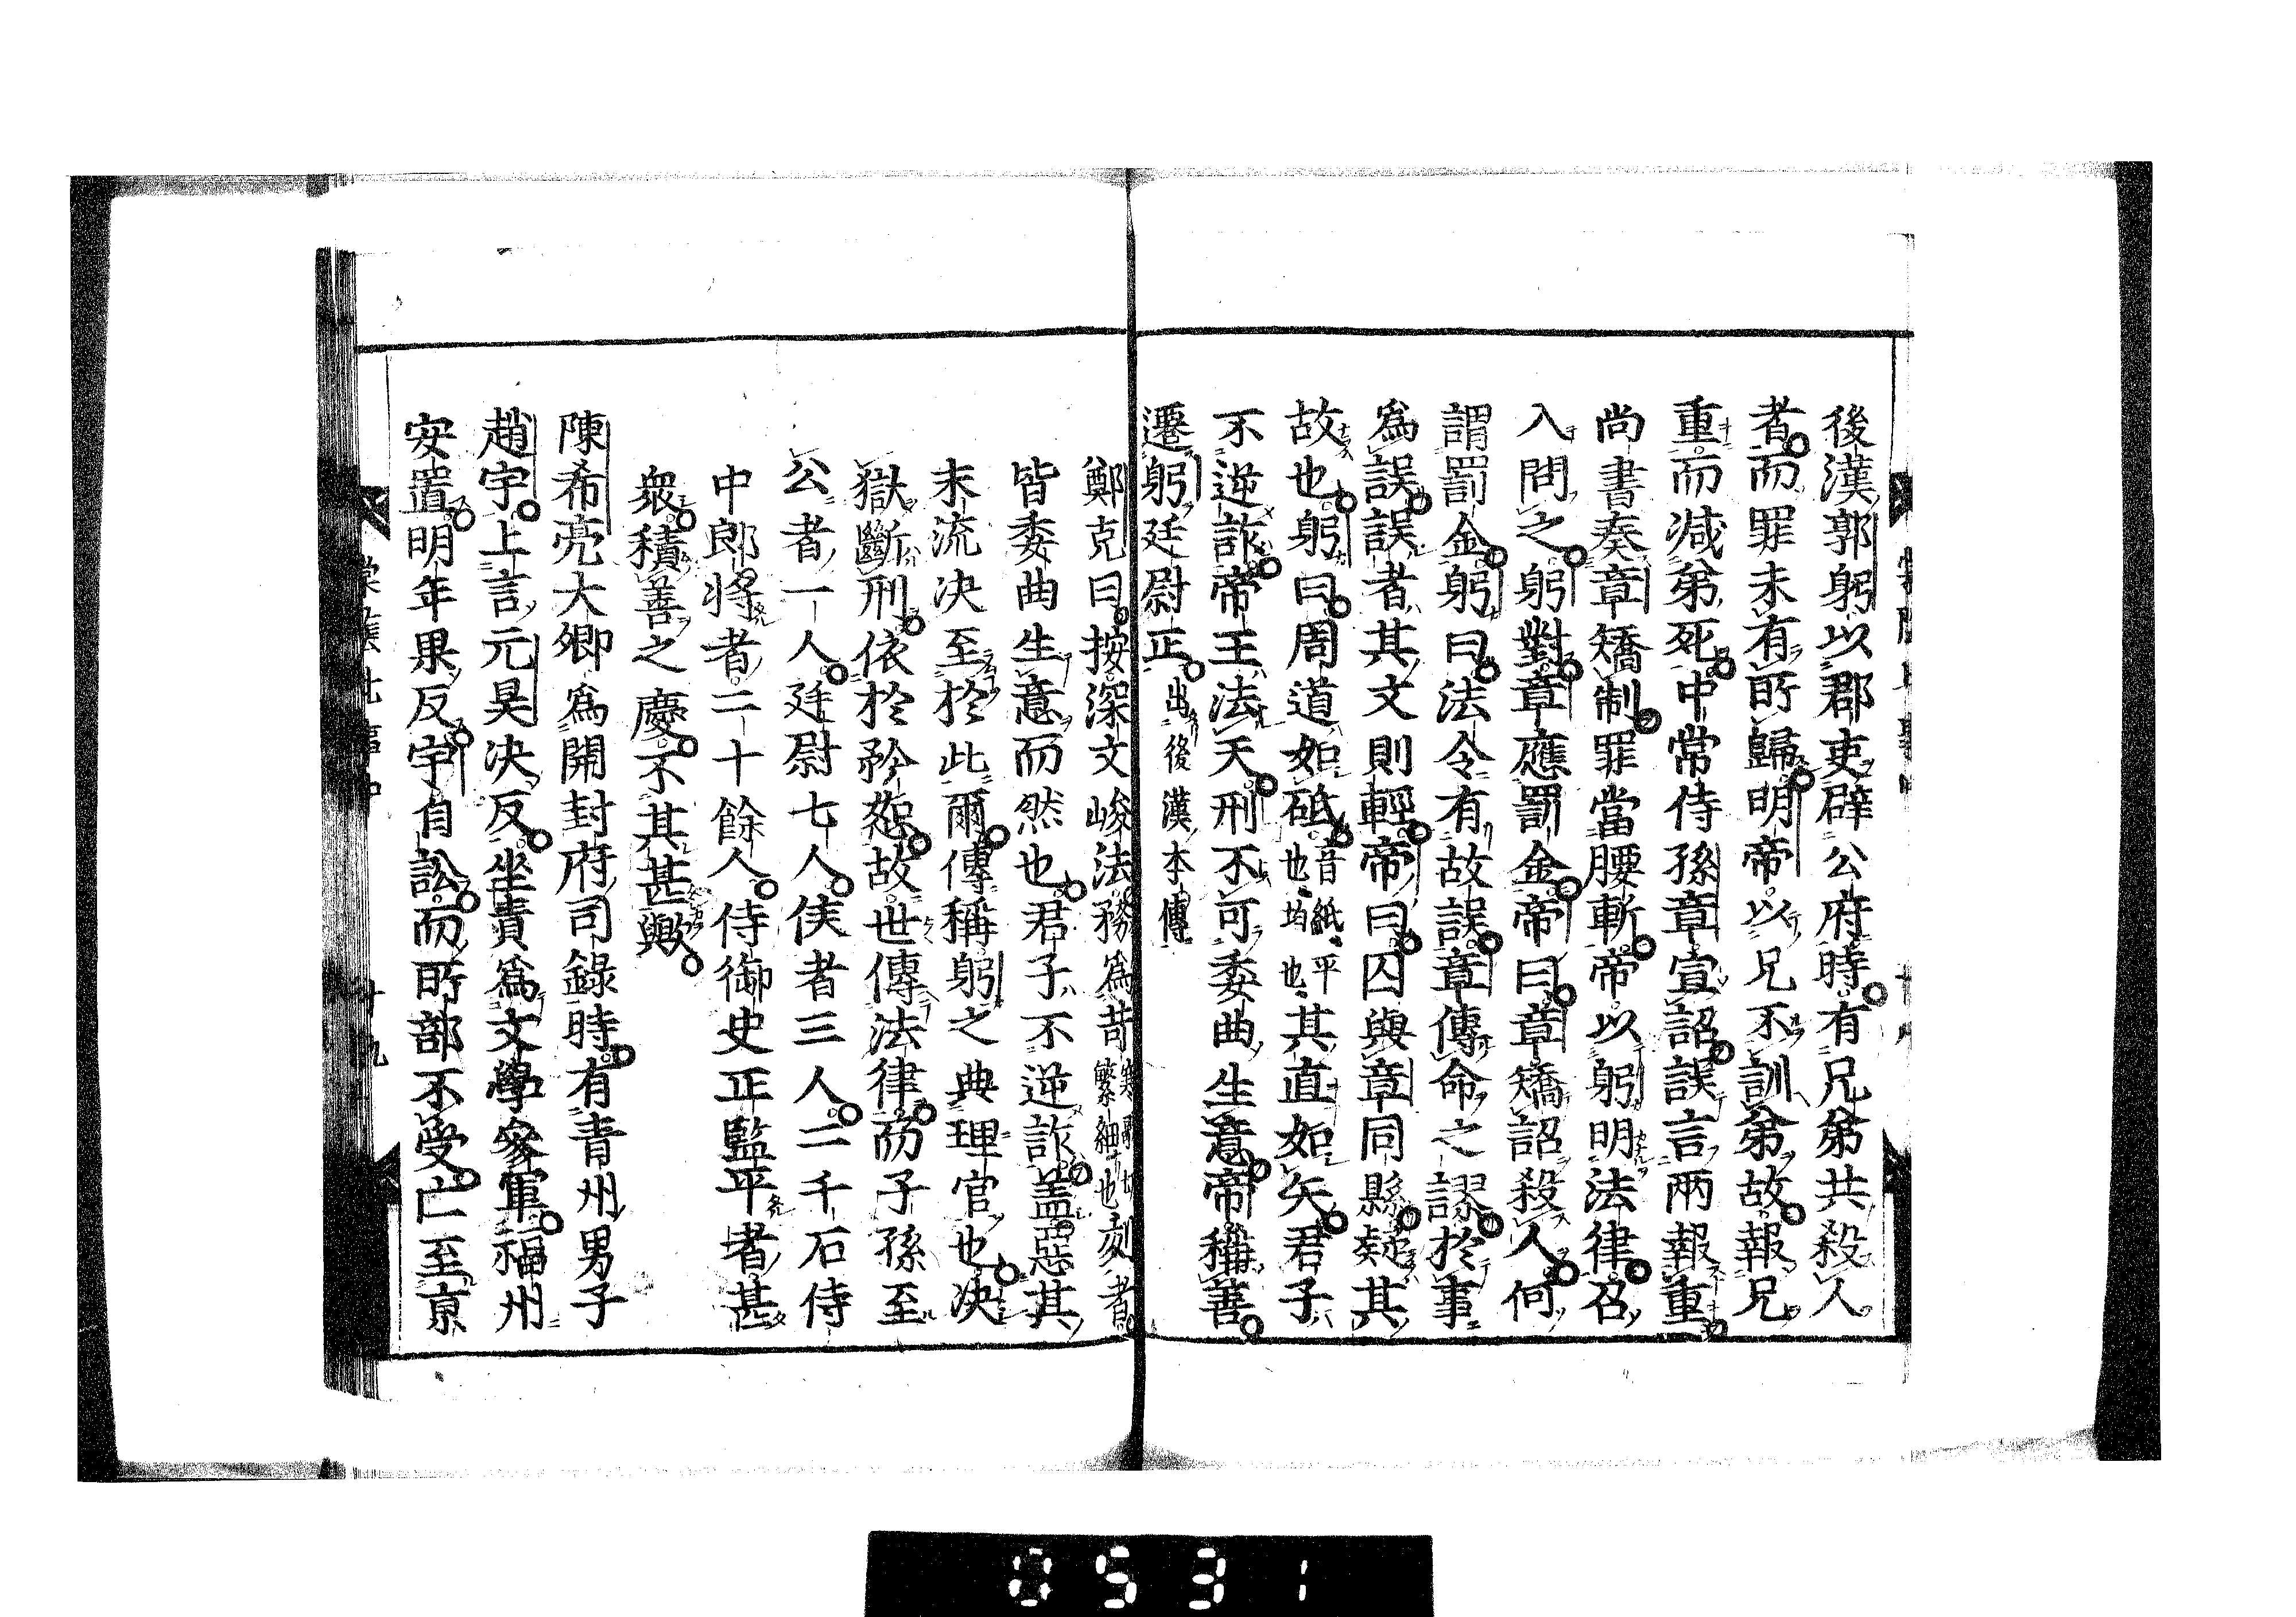 後漢郭躬以郡吏辟公府時有兄弟共殺人
者而罪未有所歸明帝以兄不訓弟故報兄
重而減弟死中常侍孫章宣詔誤言兩報重
尚書奏章矯制罪當腰斬帝以躬明法律召
入問之躬對章應罰金帝曰章矯詔殺人何
謂罰金躬曰法令有故誤章傳命之謬於事
爲誤誤者其文則輕帝曰囚與章同縣疑其
故也躬曰周道如砥音紙平也均也其直如矢君子
不逆詐帝王法天刑不可委曲生意帝稱善
遷躬廷尉正出後漢本傳
鄭克曰按深文峻法務爲苛繁細也刻者
皆委曲生意而然也君子不逆詐盖惡其
末流決至於此爾傳稱躬之典理官也决
獄斷刑依於矜恕故世傳法律而子孫至
公者一人廷尉七人侯者三人二千石侍
中郎將者二十餘人侍御史正監平者甚
衆積善之慶不其甚歟
陳希亮大卿爲開封府司錄時有青州男子
趙宇上言元昊决反坐責爲文學參軍福州
安置明年果反宇自訟而所部不受亡至京
棠陰比事中
十九